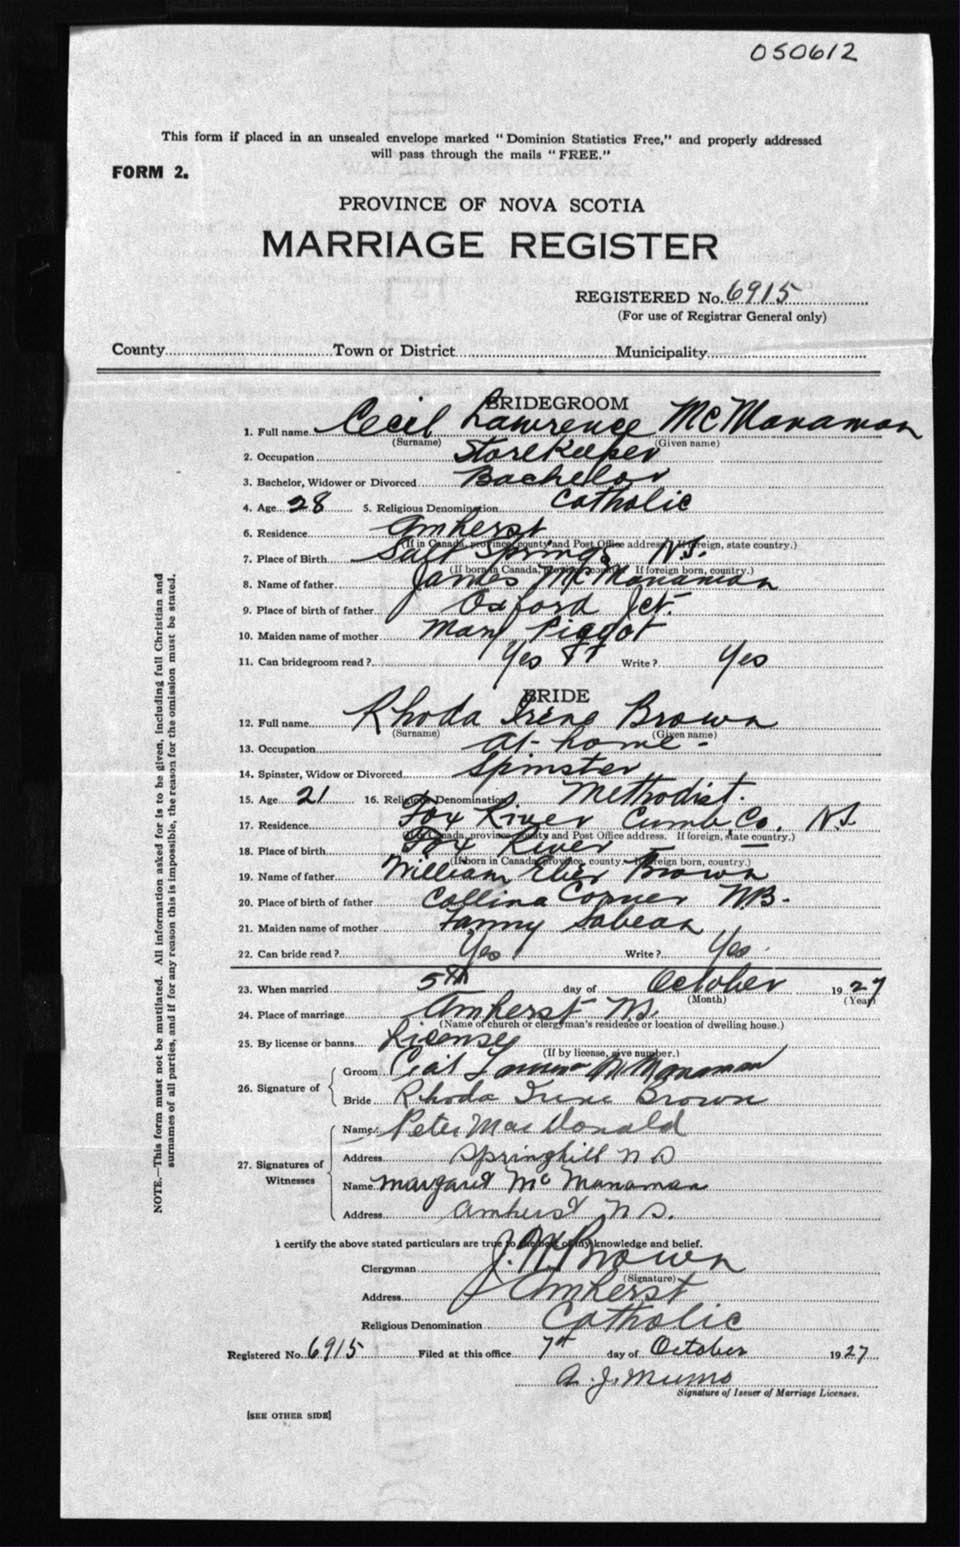 050612
This form if placed in an unsealed envelope marked "Dominion Statistics Free," and properly addressed
will pass through the mails "FREE."
FORM 2.
PROVINCE OF NOVA SCOTIA
MARRIAGE REGISTER
REGISTERED No. 6915
(For use of Registrar General only)
County Town or District Municipality
BRIDEGROOM
1. Full name Cecil Lawrence McManaman
(Surname) (Given name)
2. Occupation Storekeeper
3. Bachelor, Widower or Divorced Bachelor
4. Age 28 5. Religious Denomination Catholic
6. Residence Amherst
(If in Canada, province, county and Post Office address. If foreign, state country.)
7. Place of Birth Salt Springs N.S.
(If born in Canada, province, county. If foreign born, country.)
8. Name of father James McManaman
9. Place of birth of father Oxford Jct.
10. Maiden name of mother Mary Piggot
11. Can bridegroom read? Yes Write? Yes
BRIDE
12. Full name Rhoda Irene Brown
(Surname) (Given name)
13. Occupation at-home-
14. Spinster, Widow or Divorced Spinster
15. Age 21 16. Religious Denomination Methodist.
17. Residence Fox River Cumb. Co. N.S
(If in Canada, province, county and Post Office address. If foreign, state country.)
18. Place of birth Fox River
(If born in Canada, province, county. If foreign born, country.)
19. Name of father William Eber Brown
20. Place of birth of father Collina Corner NB.
21. Maiden name of mother Fanny Sabean
22. Can bride read? Yes Write? Yes
23. When married 5th day of October 1927
(Month) (Year)
24. Place of marriage Amherst N.S.
(Name of church or clergyman's residence or location of dwelling house.)
25. By license or banns License
(If by license, give number.)
26. Signature of
Groom Cecil Lawrence McManaman
Bride Rhoda Irene Brown
27. Signatures of Witnesses
Name Peter MacDonald
Address Springhill N S
Name Margaret McManaman
Address Amherst N S.
I certify the above stated particulars are true to the best of my knowledge and belief.
Clergyman J. N. Brown
(Signature)
Address Amherst
Religious Denomination Catholic
Registered No. 6915 Filed at this office 7th day of October 1927
A. J. Munro
Signature of Issuer of Marriage Licenses.
[SEE OTHER SIDE]
NOTE.—This form must not be mutilated. All information asked for is to be given, including full Christian and
surnames of all parties, and if for any reason this is impossible, the reason for the omission must be stated.